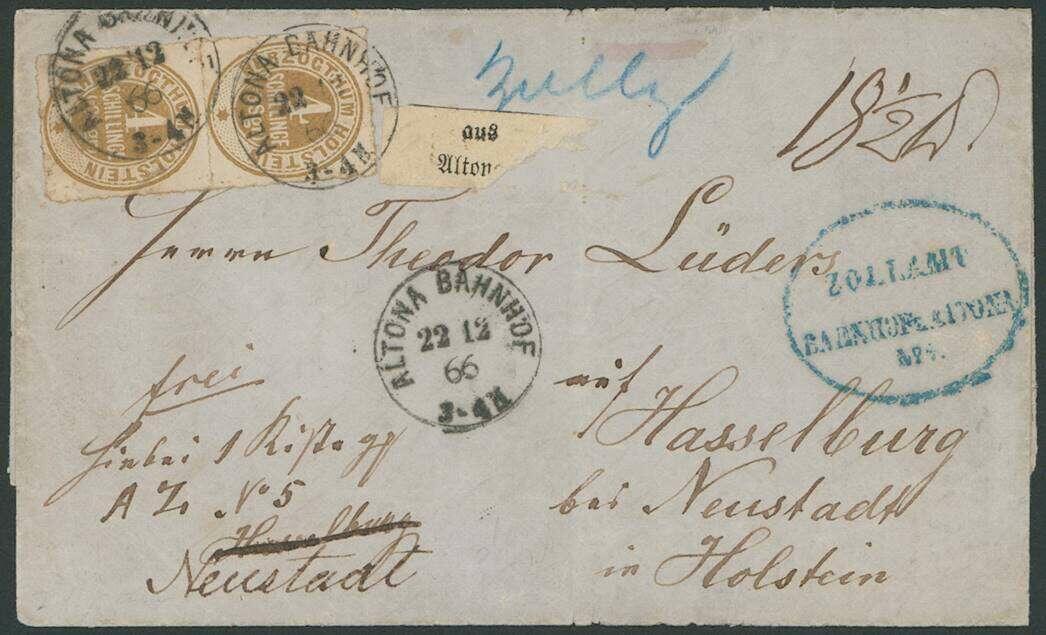 ALTONA BAHNHOF
22 12
66
3-4N
HERZOGTHUM HOLSTEIN
4
SCHILLINGE
ALTONA BAHNHOF
22
3-4N
HERZOGTHUM HOLSTEIN
4
SCHILLINGE
aus
Alton
18 1/2
Herrn Theodor Lüders
ZOLLAMT
BAHNHOF ALTONA
ALTONA BAHNHOF
22 12
66
3-4N
frei
hiebei 1 Kiste gz
A Z. No 5
Hasselburg
Neustadt
auf Hasselburg
bei Neustadt
in Holstein